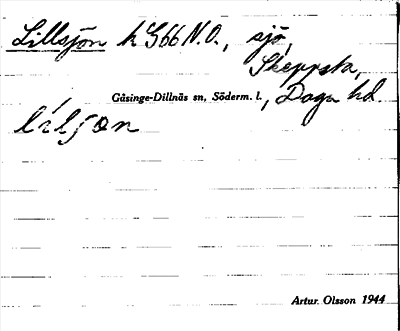 Lillsjön h G66 N.O., sjö,
Skeppsta,
Gåsinge-Dillnäs sn, Söderm. l., Daga hd.
lílʃøn
Artur Olsson 1944